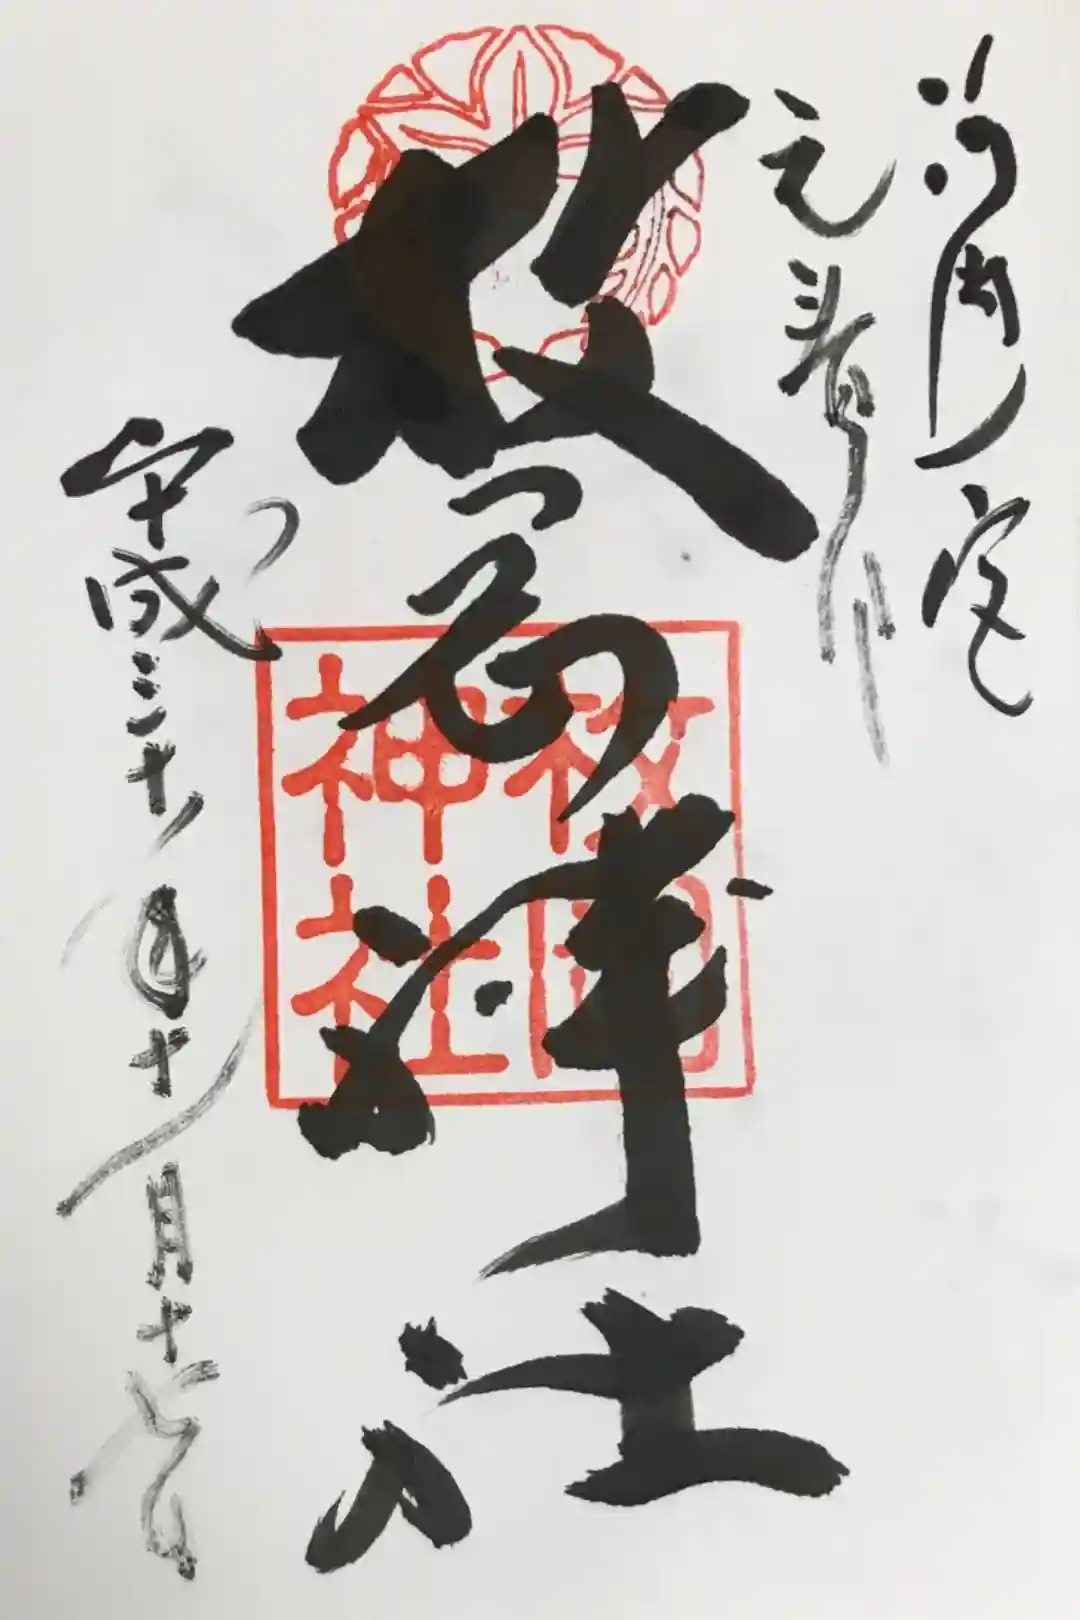 河 宮
元春日
枚岡神社
平成三十年十月十 日
枚岡
神社